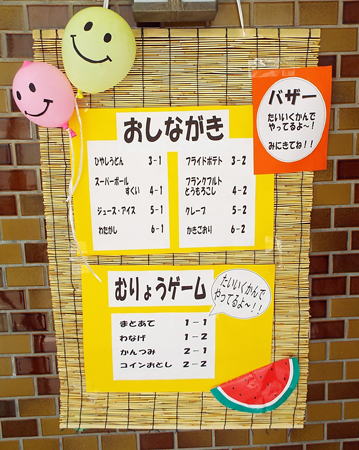 おしながき
ひやしうどん 3-1
スーパーボール
すくい 4-1
ジュース・アイス 5-1
わたがし 6-1
フライドポテト 3-2
フランクフルト
とうもろこし 4-2
クレープ 5-2
かきごおり 6-2
バザー
たいいくかんで
やってるよ～!
みにきてね!!
むりょうゲーム
たいいくかんで
やってるよ～!!
まとあて 1-1
わなげ 1-2
かんつみ 2-1
コインおとし 2-2